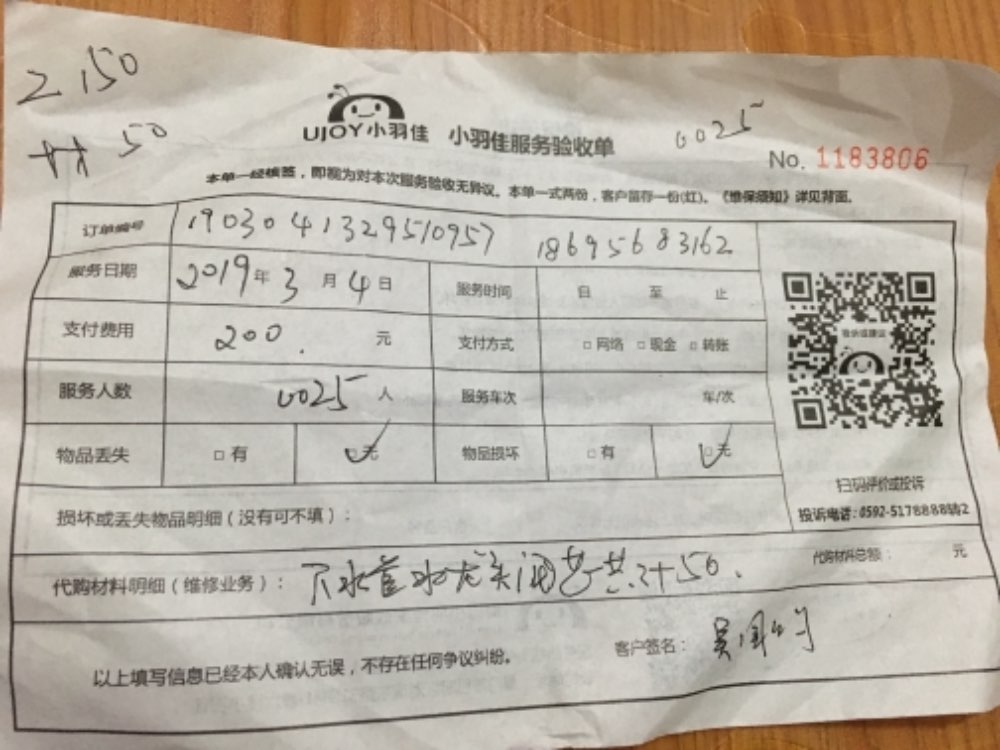 2 150
材 50
UJOY小羽佳 小羽佳服务验收单
0025
No. 1183806
本单一经核签，即视为对本次服务验收无异议。本单一式两份，客户留存一份(红)。《维保须知》详见背面。
订单编号 190304132951095​7 18695683162
服务日期 2019年3月4日 服务时间 自 至 止
支付费用 200. 元 支付方式 □网络 □现金 □转账
服务人数 0025人 服务车次 车/次
物品丢失 □有 □无 物品损坏 □有 □无
我要提建议
扫码评价或投诉
投诉电话：0592-5178888转2
损坏或丢失物品明细（没有可不填）：
代购材料明细（维修业务）： 下水管水龙头 一共计50. 代购材料总额： 元
以上填写信息已经本人确认无误，不存在任何争议纠纷。 客户签名： 吴